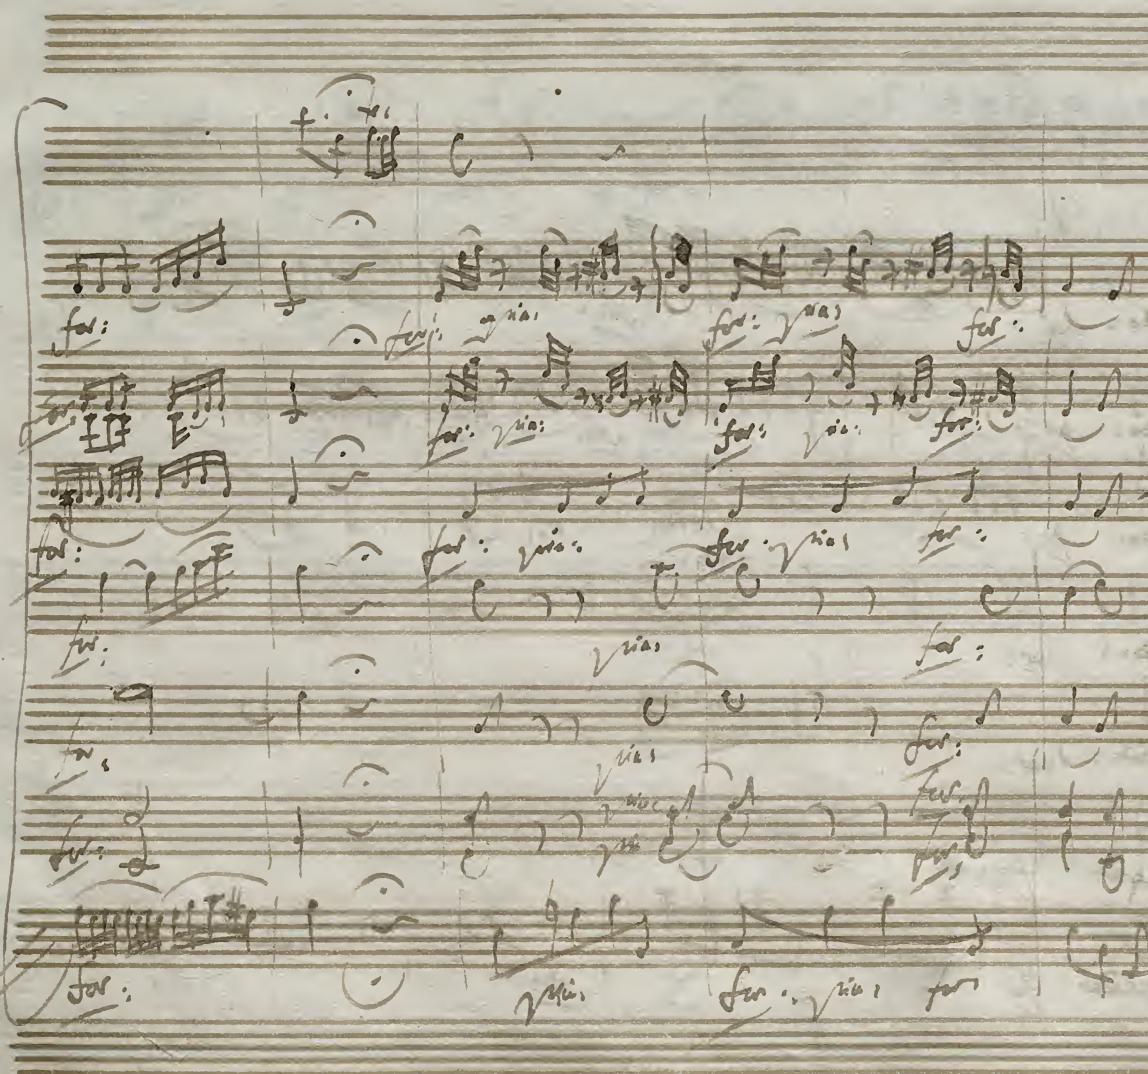 for: for: pia: for: pia: for:
for: for: pia: for: pia: for:
for: for: pia: for: pia: for:
for: pia: for:
for: pia: for:
pia: for:
for: pia: for:
for: pia: for: pia: for: